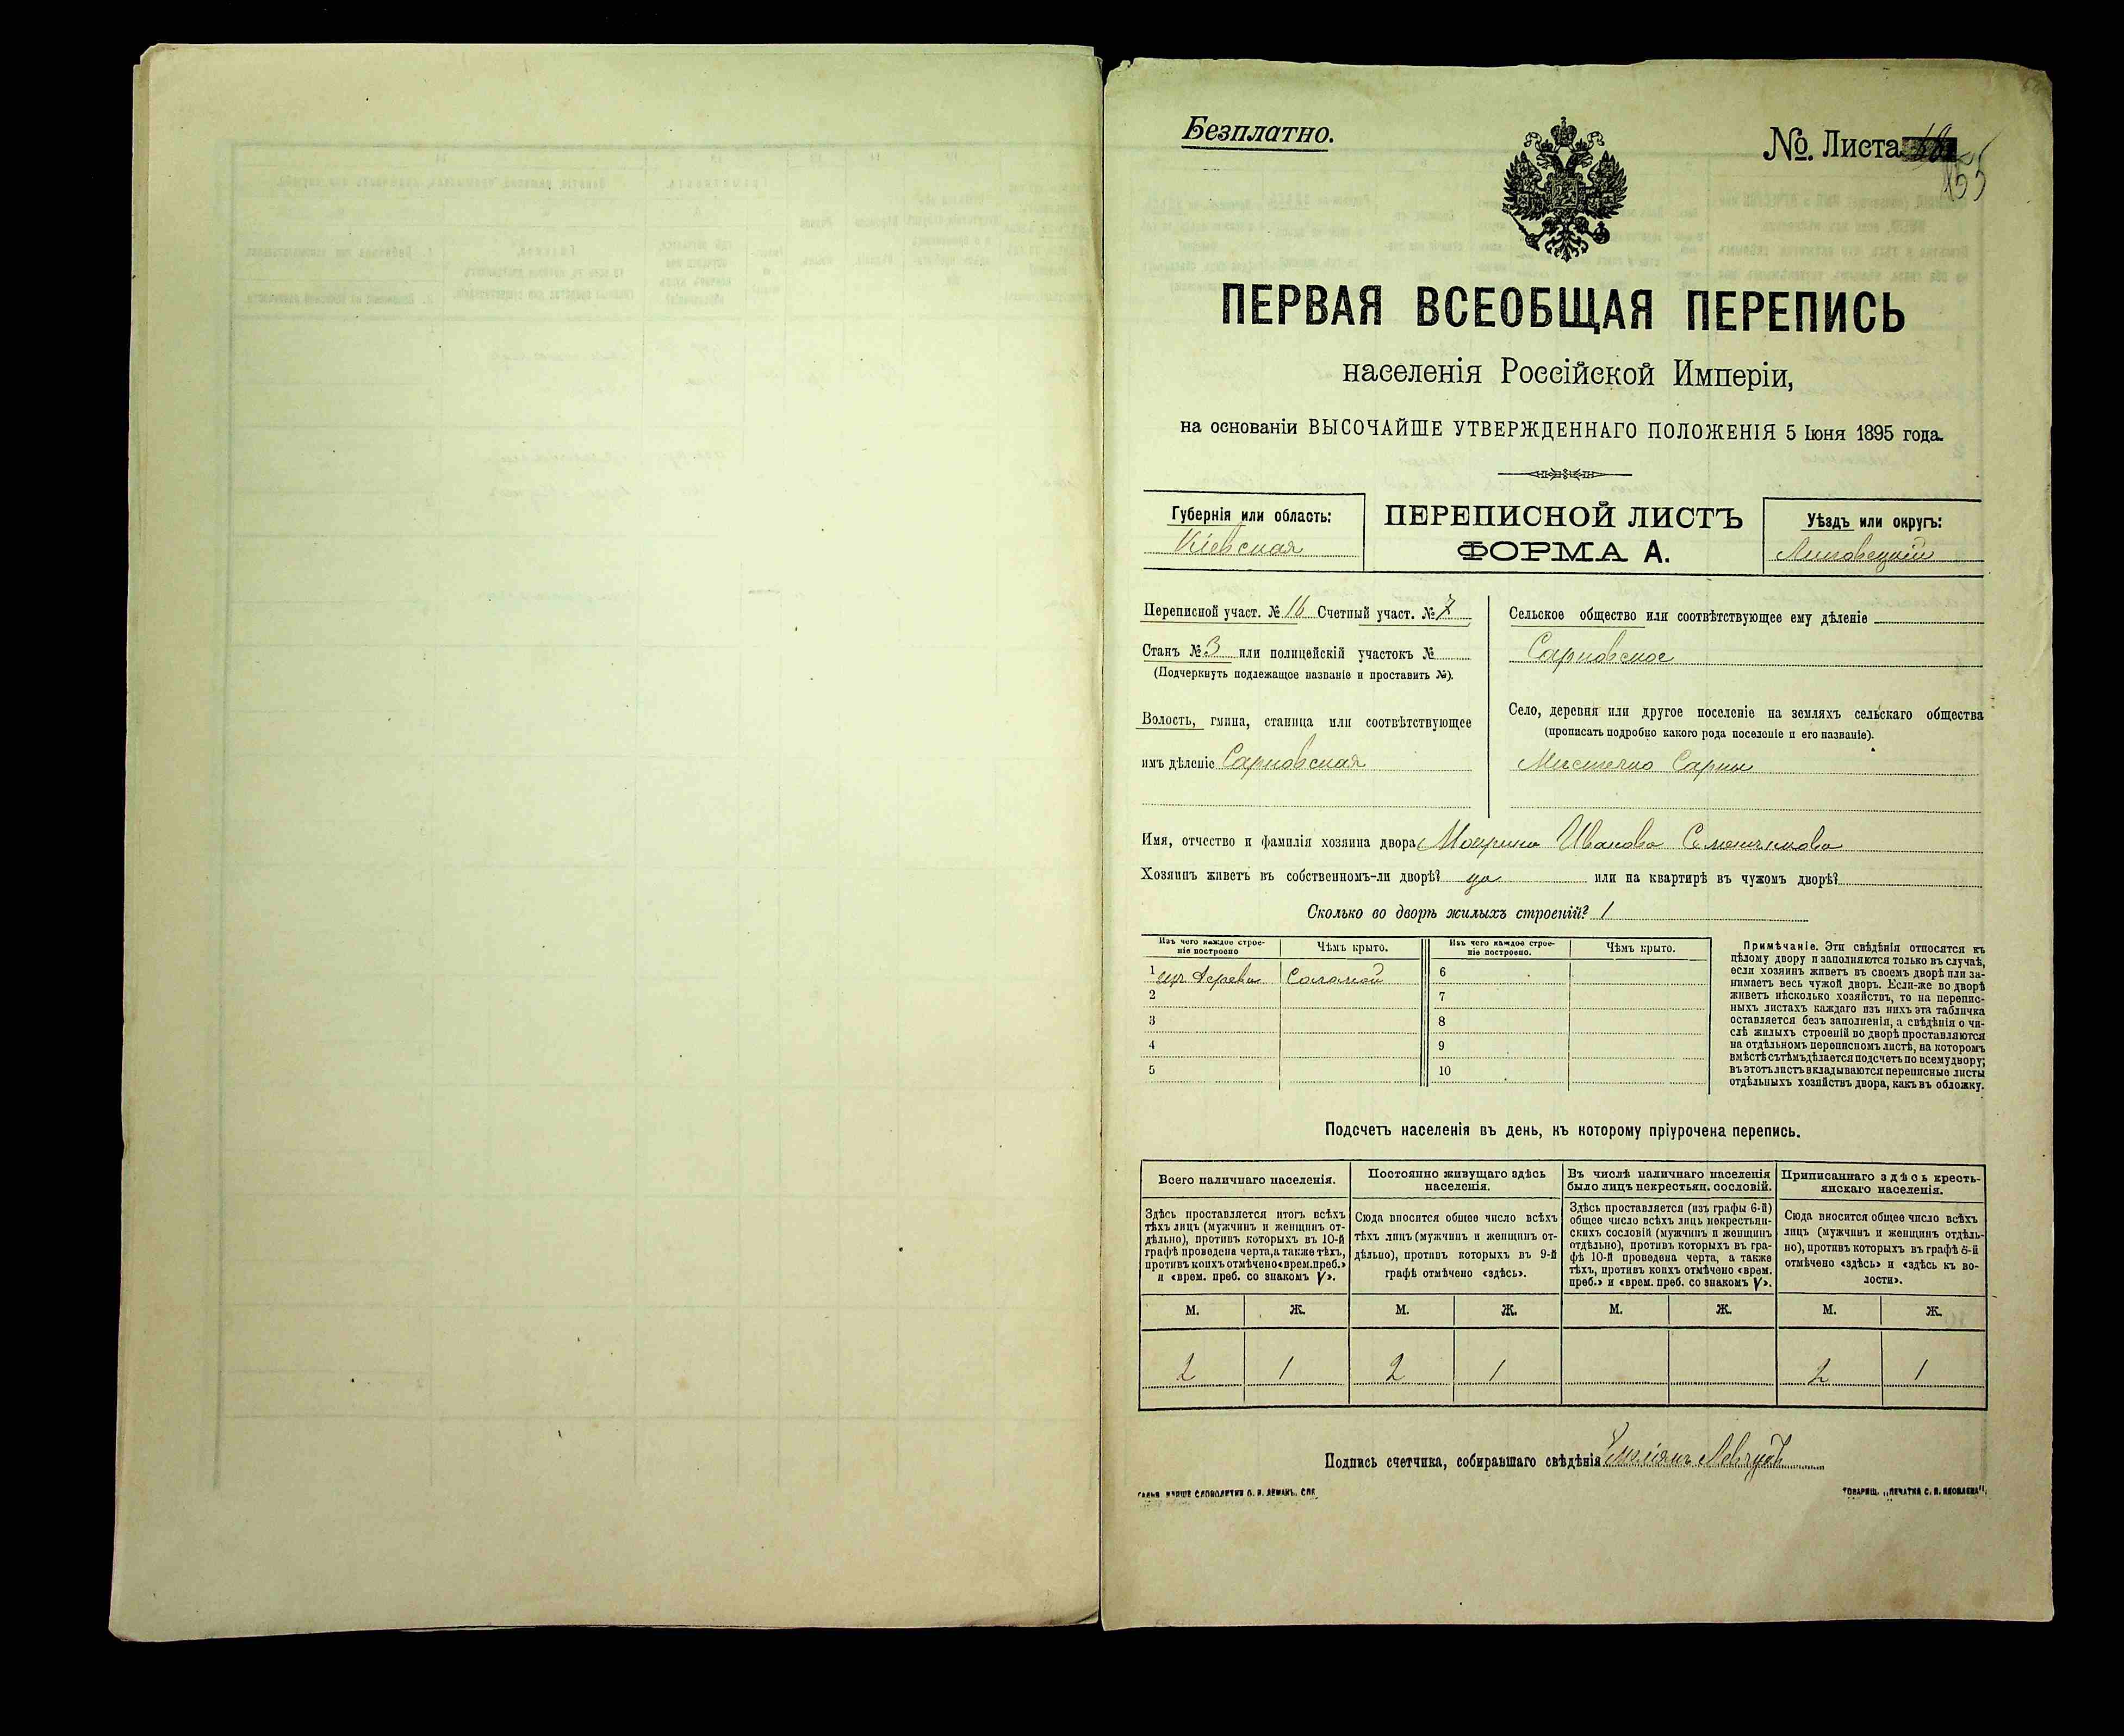 Безплатно.
№ Листа 155
ПЕРВАЯ ВСЕОБЩАЯ ПЕРЕПИСЬ
населенія Россійской Имперіи,
на основаніи ВЫСОЧАЙШЕ УТВЕРЖДЕННАГО ПОЛОЖЕНІЯ 5 Іюня 1895 года.
Губернія или область:
Кіевская
ПЕРЕПИСНОЙ ЛИСТЪ
ФОРМА А.
Уѣздъ или округъ:
Липовецкій
Переписной участ. № 16 Счетный участ. № 7
Станъ № 3 или полицейскій участокъ №
(Подчеркнуть подлежащое названіе и проставить №).
Волость, гмина, станица или соотвѣтствующее
имъ дѣленіе Сарновская
Сельское общество или соотвѣтствующее ему дѣленіе
Сарновское
Село, деревня или другое поселеніе на земляхъ сельскаго общества
(прописать подробно какого рода поселеніе и его названіе).
Мистечко Сарны
Имя, отчество и фамилія хозяина двора Иванова
Хозяинъ живетъ въ собственномъ-ли дворѣ? да или на квартирѣ въ чужомъ дворѣ?
Сколько во дворѣ жилыхъ строеній? 1
Изъ чего каждое строе-
ніе построено
Чѣмъ крыто.
Изъ чего каждое строе-
ніе построено.
Чѣмъ крыто.
1 изъ дерева Соломой
2
3
4
5
6
7
8
9
10
Примѣчаніе. Эти свѣдѣнія относятся къ
цѣлому двору и заполняются только въ случаѣ,
если хозяинъ живетъ въ своемъ дворѣ или за-
нимаетъ весь чужой дворъ. Если-же во дворѣ
живетъ нѣсколько хозяйствъ, то на перепис-
ныхъ листахъ каждаго изъ нихъ эта табличка
оставляется безъ заполненія, а свѣдѣнія о чи-
слѣ жилыхъ строеній во дворѣ проставляются
на отдѣльномъ переписномъ листѣ, на которомъ
вмѣстѣ съ тѣмъ дѣлается подсчетъ по всему двору;
въ этотъ листъ вкладываются переписные листы
отдѣльныхъ хозяйствъ двора, какъ въ обложку.
Подсчетъ населенія въ день, къ которому пріурочена перепись.
Всего наличнаго населенія.
Здѣсь проставляется итогъ всѣхъ
тѣхъ лицъ (мужчинъ и женщинъ от-
дѣльно), противъ которыхъ въ 10-й
графѣ проведена черта, а также тѣхъ,
противъ коихъ отмѣчено «врем. преб.»
и «врем. преб. со знакомъ V».
Постоянно живущаго здѣсь
населенія.
Сюда вносится общее число всѣхъ
тѣхъ лицъ (мужчинъ и женщинъ от-
дѣльно), противъ которыхъ въ 9-й
графѣ отмѣчено «здѣсь».
Въ числѣ наличнаго населенія
было лицъ некрестьян. сословій.
Здѣсь проставляется (изъ графы 6-й)
общее число всѣхъ лицъ некрестьян-
скихъ сословій (мужчинъ и женщинъ
отдѣльно), противъ которыхъ въ гра-
фѣ 10-й проведена черта, а также
тѣхъ, противъ коихъ отмѣчено «врем.
преб.» и «врем. преб. со знакомъ V».
Приписаннаго здѣсь кресть-
янскаго населенія.
Сюда вносится общее число всѣхъ
лицъ (мужчинъ и женщинъ отдѣль-
но), противъ которыхъ въ графѣ 8-й
отмѣчено «здѣсь» и «здѣсь къ во-
лости».
М. Ж. М. Ж. М. Ж. М. Ж.
2 1 2 1 2 1
Подпись счетчика, собиравшаго свѣдѣнія
ТОВАРИЩ. „ПЕЧАТНЯ С. П. ЯКОВЛЕВА“.